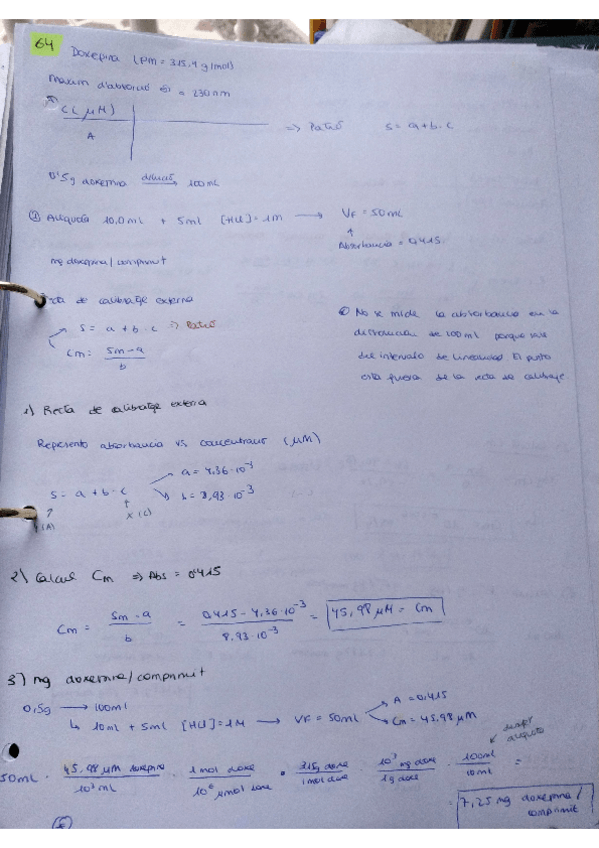 64
Doxepina (PM = 315.4 g/mol)
Maxim d'absorció = 230nm
C(μM)
A
=> Patró s = a+b·c
0'5g doxepina dilució 100mL
① Alíquota 10.0mL + 5mL [HCl]=1M → VF = 50mL
↑
Absorbancia = 0,415.
mg doxepina/comprimit
Recta de calibratge externa
s = a + b · c => Patró
Cm = Sm-a / b
② No se mide la absorbancia en la
disolucion de 100ml porque sale
del intervalo de linealidad El punto
esta fuera de la recta de calibraje.
1) Recta de calibratge externa
Represento absorbancia vs concentració (μM)
s = a + b · c
a = 4,36·10⁻³
b = 8,93·10⁻³
(A)
x (C)
2) Càlcul Cm => Abs = 0,415
Cm = Sm-a / b = 0,415 - 4,36·10⁻³ / 8.93·10⁻³ = 45,98 μM = Cm
3) mg doxepina/comprimit
0,5g → 100ml
↳ 10ml + 5ml [HCl]=1M → VF = 50mL
A = 0,415
Cm = 45.98 μM
alíquota
50mL · 45,98 μM doxepina / 10³ mL · 1 mol doxe / 10⁶ μmol doxe · 315g doxe / 1mol doxe · 10³ mg doxe / 1g doxe · 100ml / 10ml =
= 7,25 mg doxepina/
comprimit